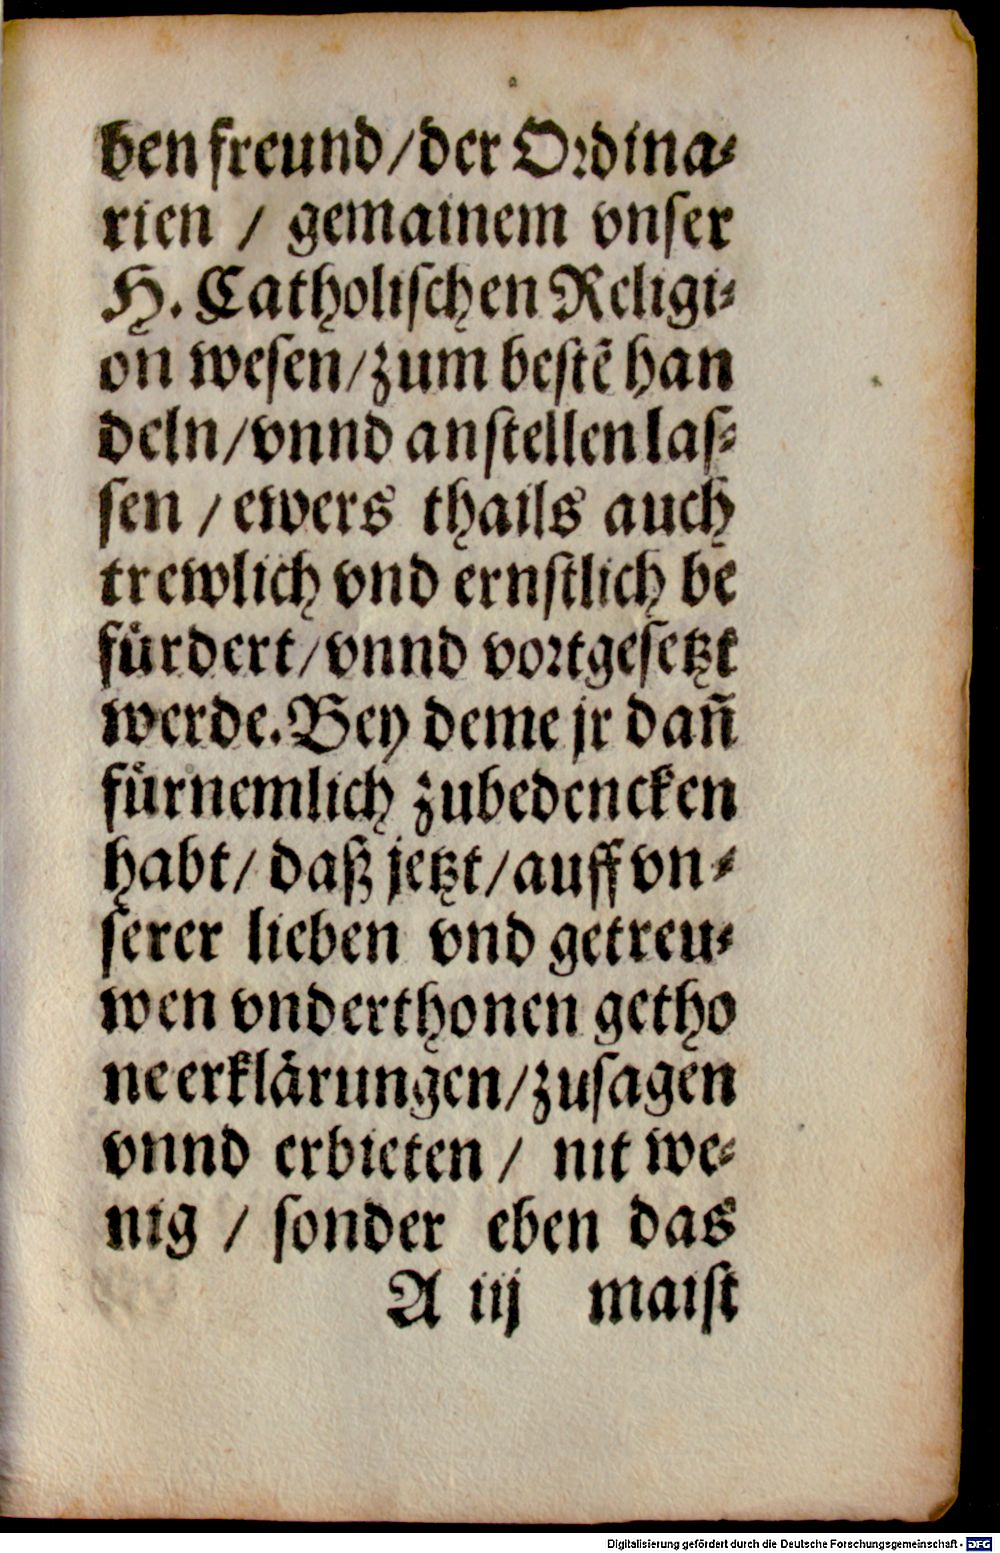 ben freund/der Ordina⸗
rien / gemainem vnser
H. Catholischen Religi⸗
on wesen/zum bestẽ han
deln/vnnd anstellen las⸗
sen / ewers thails auch
trewlich vnd ernstlich be
fürdert/vnnd vortgesetzt
werde. Bey deme jr dañ
fürnemlich zubedencken
habt/ daß jetzt/auff vn⸗
serer lieben vnd getreu⸗
wen vnderthonen getho
ne erklärungen/zusagen
vnnd erbieten / nit we⸗
nig / sonder eben das
A iij maist
Digitalisierung gefördert durch die Deutsche Forschungsgemeinschaft - DFG